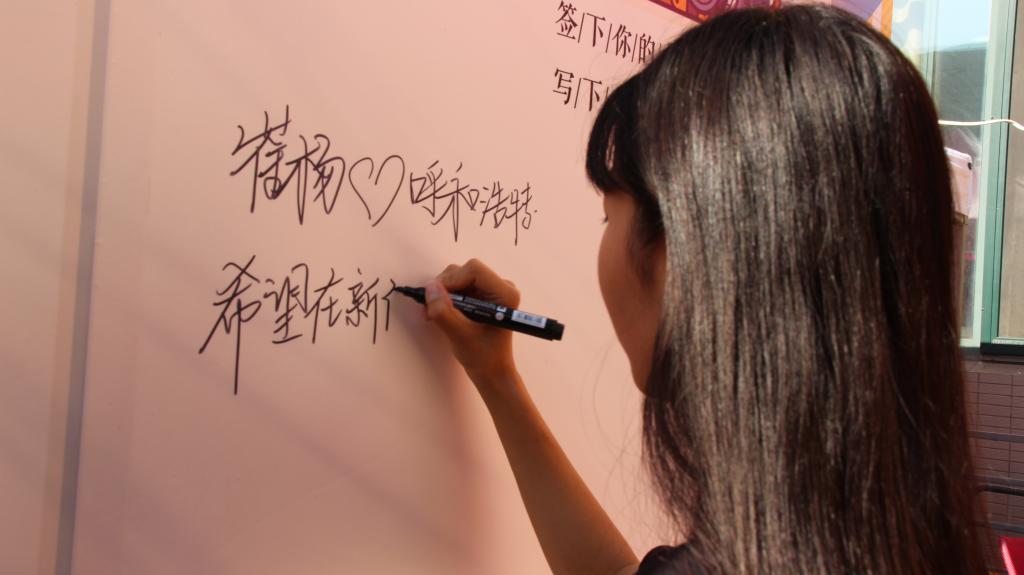 签/下/你/的
写/下/
崔杨♡呼和浩特
希望在新